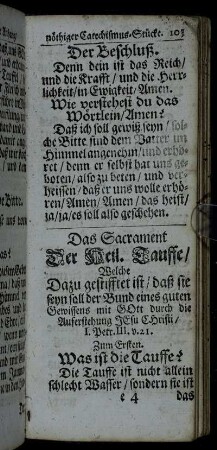 nöthiger Catechismus-Stücke. 103
Der Beschluß.
Denn dein ist das Reich/
und die Krafft/und die Herr-
lichkeit/in Ewigkeit/Amen.
Wie verstehest du das
Wörtlein/Amen?
Daß ich soll gewiß seyn/sol-
che Bitte sind dem Vatter im
Himmel angenehm/und erhö-
ret/denn er selbst hat uns ge-
boten/also zu beten/und ver-
heissen/daß er uns wolle erhö-
ren/Amen/Amen/das heist/
ja/ja/es soll also geschehen.
Das Sacrament
Der Heil. Tauffe/
Welche
Dazu gestifftet ist/daß sie
seyn soll der Bund eines guten
Gewissens mit GOtt durch die
Auferstehung JEsu CHristi/
1. Petr. III. v. 21.
Zum Ersten.
Was ist die Tauffe?
Die Tauffe ist nicht allein
schlecht Wasser/sondern sie ist
e 4 das